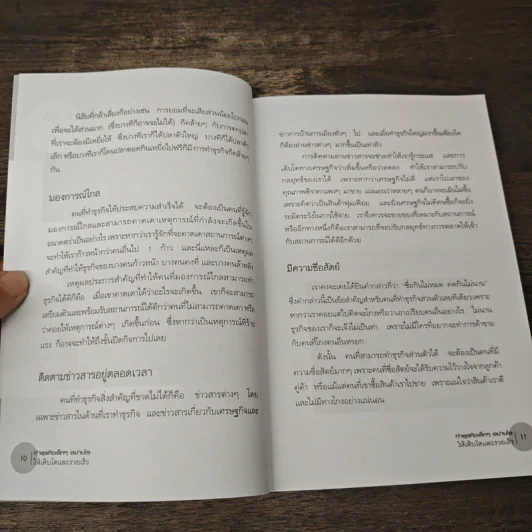 นิสัยที่กล้าเสี่ยงก็อย่างเช่น การยอมที่จะเสียส่วนน้อยไปก่อน
เพื่อจะได้ส่วนมาก (ซึ่งบางทีก็อาจจะไม่ได้) ก็คล้ายๆ กับการตกปลา
ที่เราจะต้องมีเหยื่อให้ ซึ่งบางทีเราก็ได้ปลาตัวใหญ่ บางทีก็ได้ปลาตัว
เล็ก หรือบางทีเราก็โดนปลาตอดกินเหยื่อไปฟรีก็มี การทำธุรกิจก็คล้ายๆ
กัน
มองการณ์ไกล
คนที่ทำธุรกิจให้ประสบความสำเร็จได้ จะต้องเป็นคนที่รู้จัก
มองการณ์ไกลและสามารถคาดเดาเหตุการณ์ที่กำลังจะเกิดขึ้นใน
อนาคตว่าเป็นอย่างไร เพราะหากว่าเรารู้จักที่จะคาดเดาสถานการณ์ต่างๆ
จะทำให้เราก้าวหน้ากว่าคนอื่นไป 1 ก้าว และนี่แหละก็เป็นเหตุผล
สำคัญที่ทำให้ธุรกิจของบางคนก้าวหน้า บางคนคงที่ และบางคนล้าหลัง
เหตุผลประการสำคัญที่ทำให้คนที่มองการณ์ไกลสามารถทำ
ธุรกิจได้ดีก็คือ เมื่อเขาคาดเดาได้ว่าอะไรจะเกิดขึ้น เขาก็จะสามารถ
เตรียมตัวและพร้อมรับสถานการณ์ได้ดีกว่าคนที่ไม่สามารถคาดเดา หรือ
ว่าคอยให้เหตุการณ์ต่างๆ เกิดขึ้นก่อน ซึ่งหากว่าเป็นเหตุการณ์ที่ร้าย
แรง ก็อาจจะทำให้ถึงขั้นปิดกิจการไปเลย
ติดตามข่าวสารอยู่ตลอดเวลา
คนที่ทำธุรกิจสิ่งสำคัญที่ขาดไม่ได้ก็คือ ข่าวสารต่างๆ โดย
เฉพาะข่าวสารในด้านที่เราทำธุรกิจ และข่าวสารเกี่ยวกับเศรษฐกิจและ
10
ทำธุรกิจเล็กๆ อย่างไร
ให้เติบโตและรวยเร็ว
ข่าวการบ้านการเมืองทั่วๆ ไป และเมื่อทำธุรกิจใหญ่มากขึ้นเพียงใด
ก็ต้องอ่านข่าวต่างๆ มากขึ้นเป็นเท่าตัว
การติดตามอ่านข่าวสารจะช่วยทำให้เรารู้กระแส และการ
เติบโตทางเศรษฐกิจว่าเพิ่มขึ้นหรือว่าลดลง ทำให้เราสามารถปรับ
กลยุทธ์ของเราได้ เพราะหากว่าเศรษฐกิจไม่ดี แต่เราไปเอาของ
คุณภาพดีราคาแพงๆ มาขาย แน่นอนว่าหลายๆ คนก็อาจจะเมินไม่ซื้อ
เพราะคิดว่าเป็นสินค้าฟุ่มเฟือย และยิ่งเศรษฐกิจไม่ดีคนซื้อก็จะยิ่ง
ระมัดระวังในการใช้จ่าย เราจึงควรจะขายของที่เหมาะกับสถานการณ์
หรืออีกทางหนึ่งก็คือเราสามารถที่จะปรับกลยุทธ์ทางการตลาดให้เข้า
กับสถานการณ์ได้ดีอีกด้วย
มีความซื่อสัตย์
เราคงจะเคยได้ยินคำกล่าวที่ว่า “ซื่อกินไม่หมด คดกินไม่นาน”
ซึ่งคำกล่าวนี้เป็นข้อสำคัญสำหรับคนที่ทำธุรกิจส่วนตัวเลยทีเดียวเพราะ
หากว่าเราคอยแต่ไปคิดจะโกงหรือว่าเอาเปรียบคนอื่นอย่างไร ไม่นาน
ธุรกิจของเราก็จะเจ๊งไม่เป็นท่า เพราะไม่มีใครที่อยากจะทำการค้าขาย
กับคนที่โกงคนอื่นหรอก
ดังนั้น คนที่สามารถทำธุรกิจส่วนตัวได้ จะต้องเป็นคนที่มี
ความซื่อสัตย์มากๆ เพราะคนที่ซื่อสัตย์จะได้รับความไว้วางใจจากลูกค้า
คู่ค้า หรือแม้แต่คนที่เราซื้อสินค้าเราไปขาย เพราะแน่ใจว่าสินค้าเราดี
และไม่มีทางโกงอย่างแน่นอน
ทำธุรกิจเล็กๆ อย่างไร
ให้เติบโตและรวยเร็ว
11